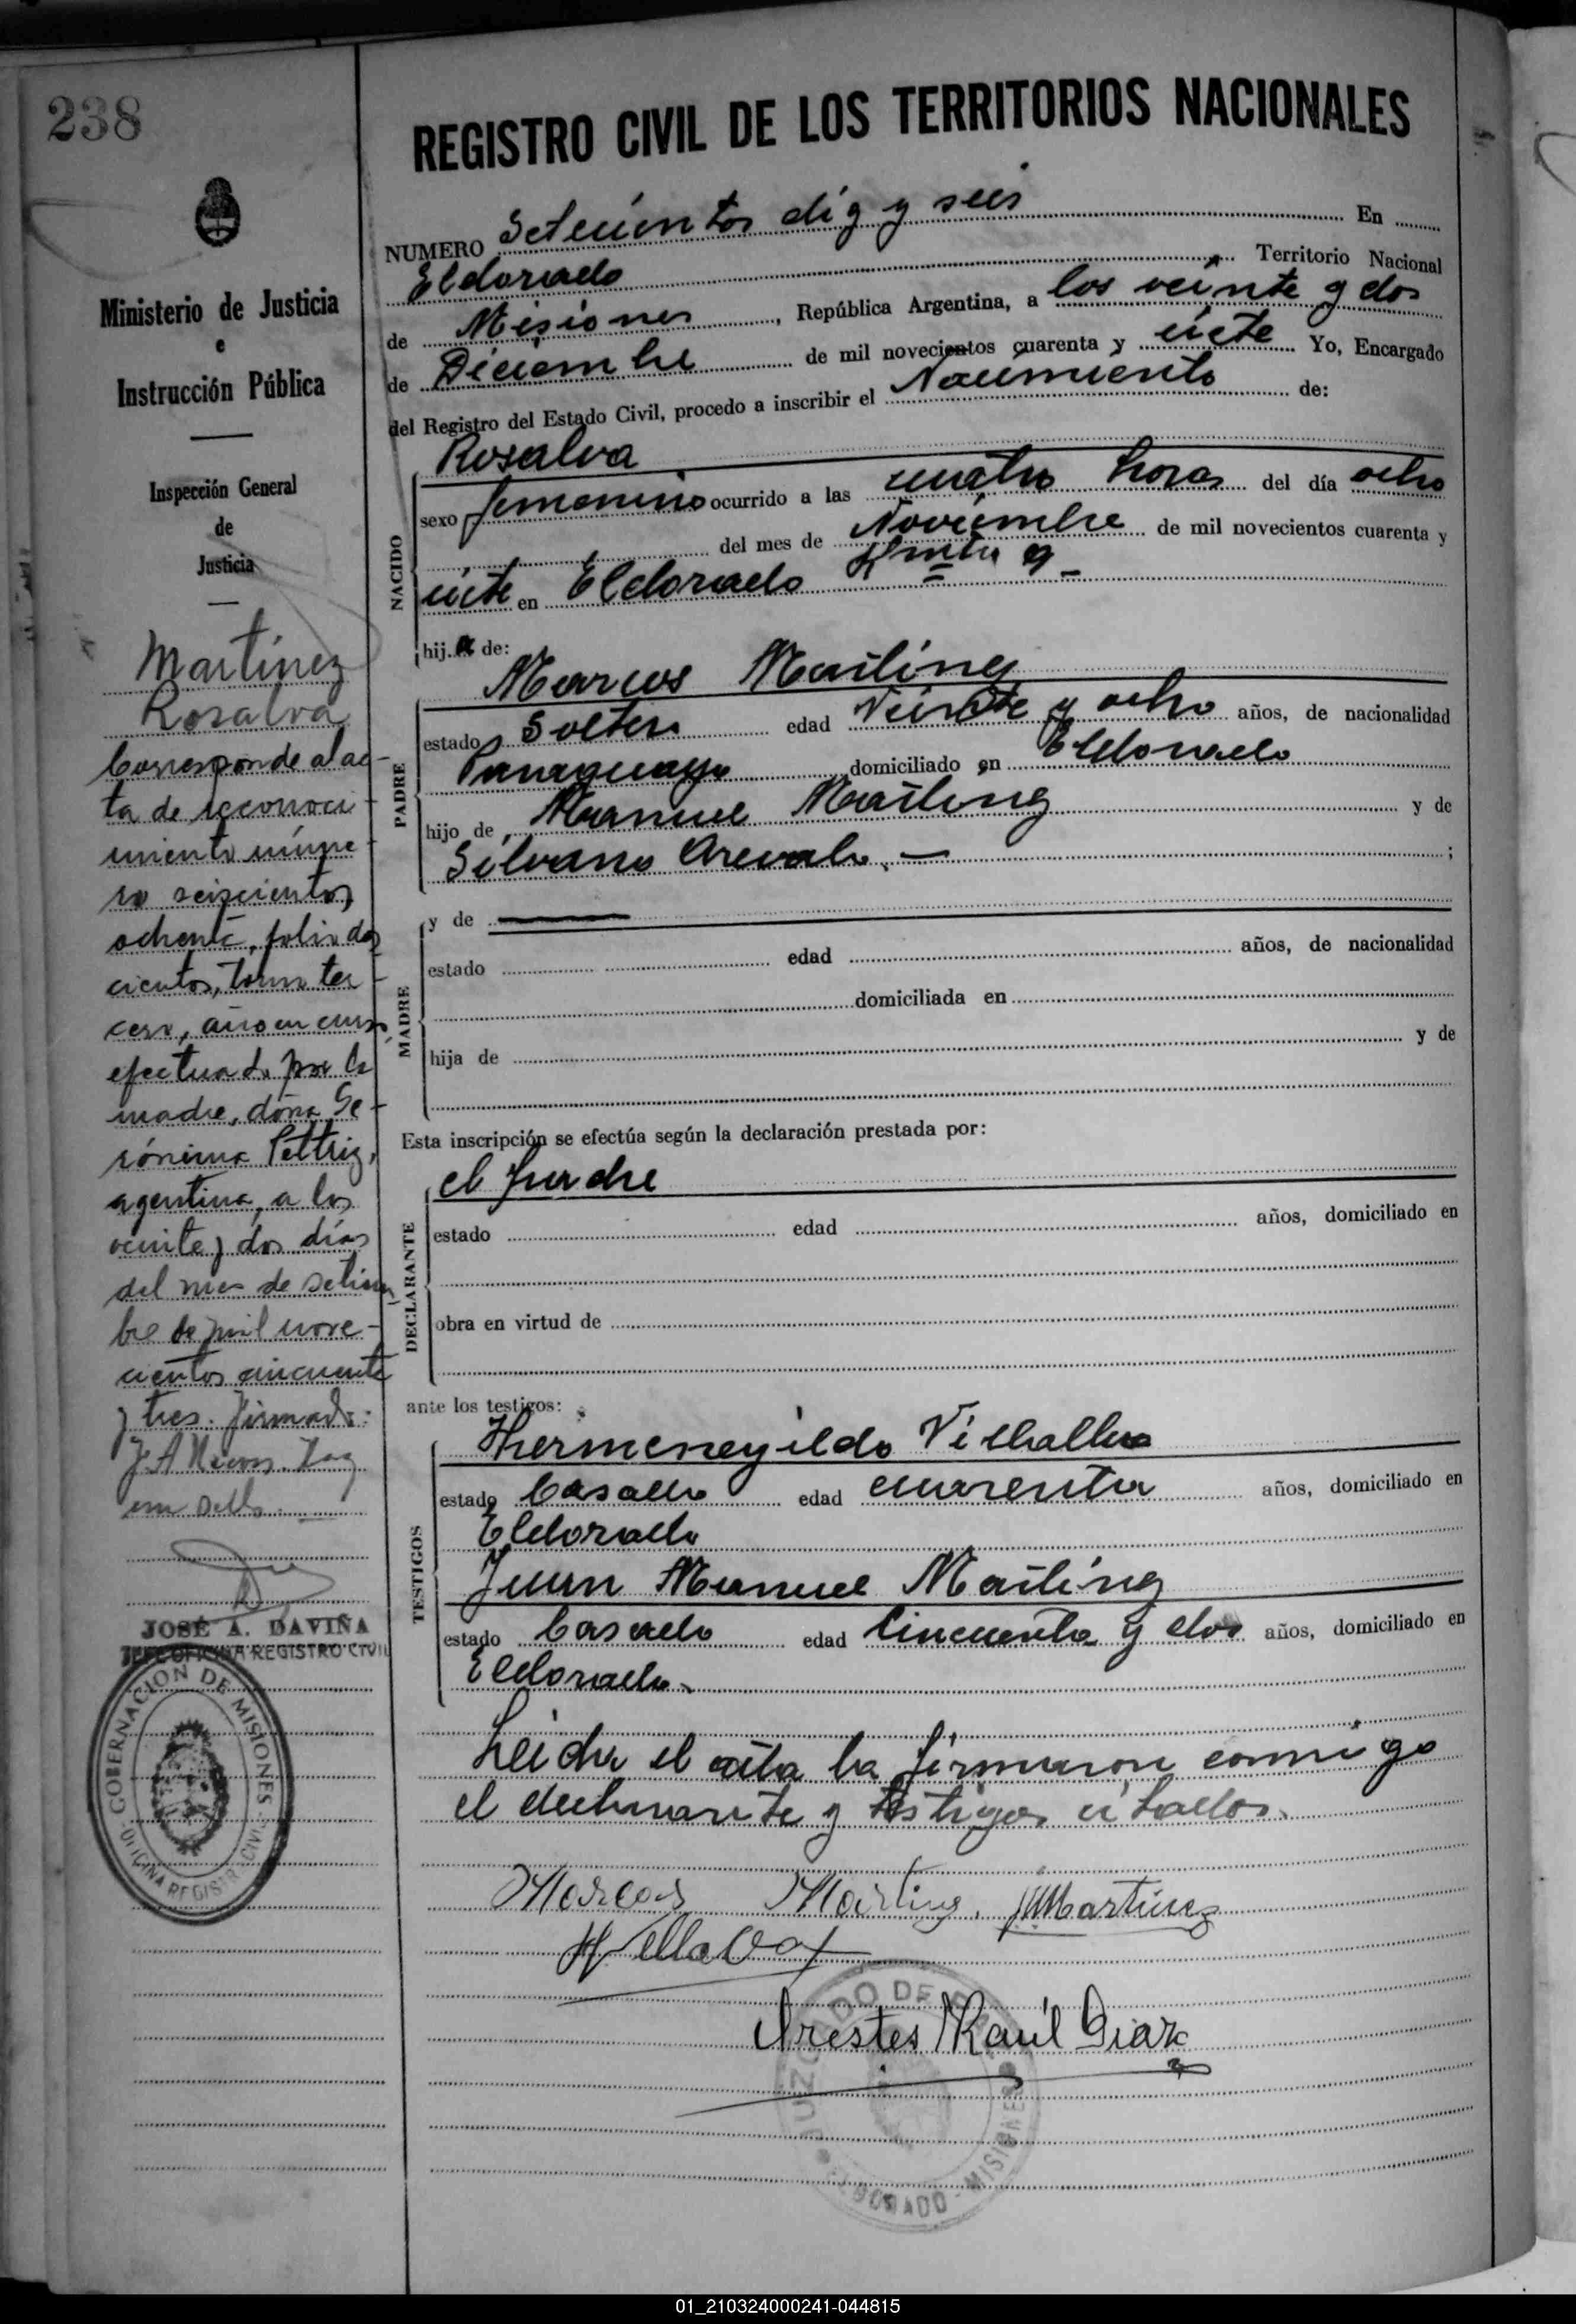 238
Ministerio de Justicia
e
Instrucción Pública
Inspección General
de
Justicia
Martínez
Rosalva
Corresponde al ac-
ta de reconoci-
miento núme-
ro seiscientos
ochenta, folio dos
cientos, tomo ter-
cero, año en curso
efectuada por la
madre, doña Ge-
rónima Pettriz,
agentina, a los
veinte y dos días
del mes de setiem-
bre de mil nove-
cientos cincuenta
y tres. Firmado:
J. A.
un sello.
JOSÉ A. DAVIÑA
JEFE OFICINA REGISTRO CIVIL
GOBERNACION DE MISIONES
OFICINA REGISTRO CIVIL
REGISTRO CIVIL DE LOS TERRITORIOS NACIONALES
NUMERO Setecientos diez y seis En
Eldorado Territorio Nacional
de Misiones, República Argentina, a los veinte y dos
de Diciembre de mil novecientos cuarenta y siete Yo, Encargado
del Registro del Estado Civil, procedo a inscribir el Nacimiento de:
NACIDO
Rosalva
sexo femenino ocurrido a las cuatro horas del día ocho
del mes de Noviembre de mil novecientos cuarenta y
siete en Eldorado Kmtr 9
hija de:
PADRE
Marcos Martinez
estado Soltero edad Veinte y ocho años, de nacionalidad
Paraguayo domiciliado en Eldorado
hijo de Manuel Martinez y de
Silvana Arevalo.
MADRE
y de
estado edad años, de nacionalidad
domiciliada en
hija de y de
Esta inscripción se efectúa según la declaración prestada por:
DECLARANTE
el padre
estado edad años, domiciliado en
obra en virtud de
ante los testigos:
TESTIGOS
Hermenegildo Villalba
estado Casado edad cuarenta años, domiciliado en
Eldorado
Juan Manuel Martinez
estado Casado edad Cincuenta y dos años, domiciliado en
Eldorado.
Leida el acta la firmaron conmigo
el declarante y testigos citados.
Marcos Martinez. JMMartinez
HVillalba
Orestes Raúl Diaz
JUZGADO DE PAZ
ELDORADO - MISIONES
01_210324000241-044815